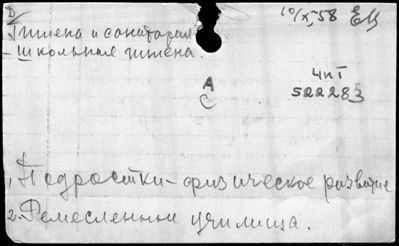 В
Гигиена и санитария
- школьная гигиена.
10/X, 58 ЕЦ
А
С
ЧпI
522283
1, Подростки - физическое развитие
2. Ремесленные училища.